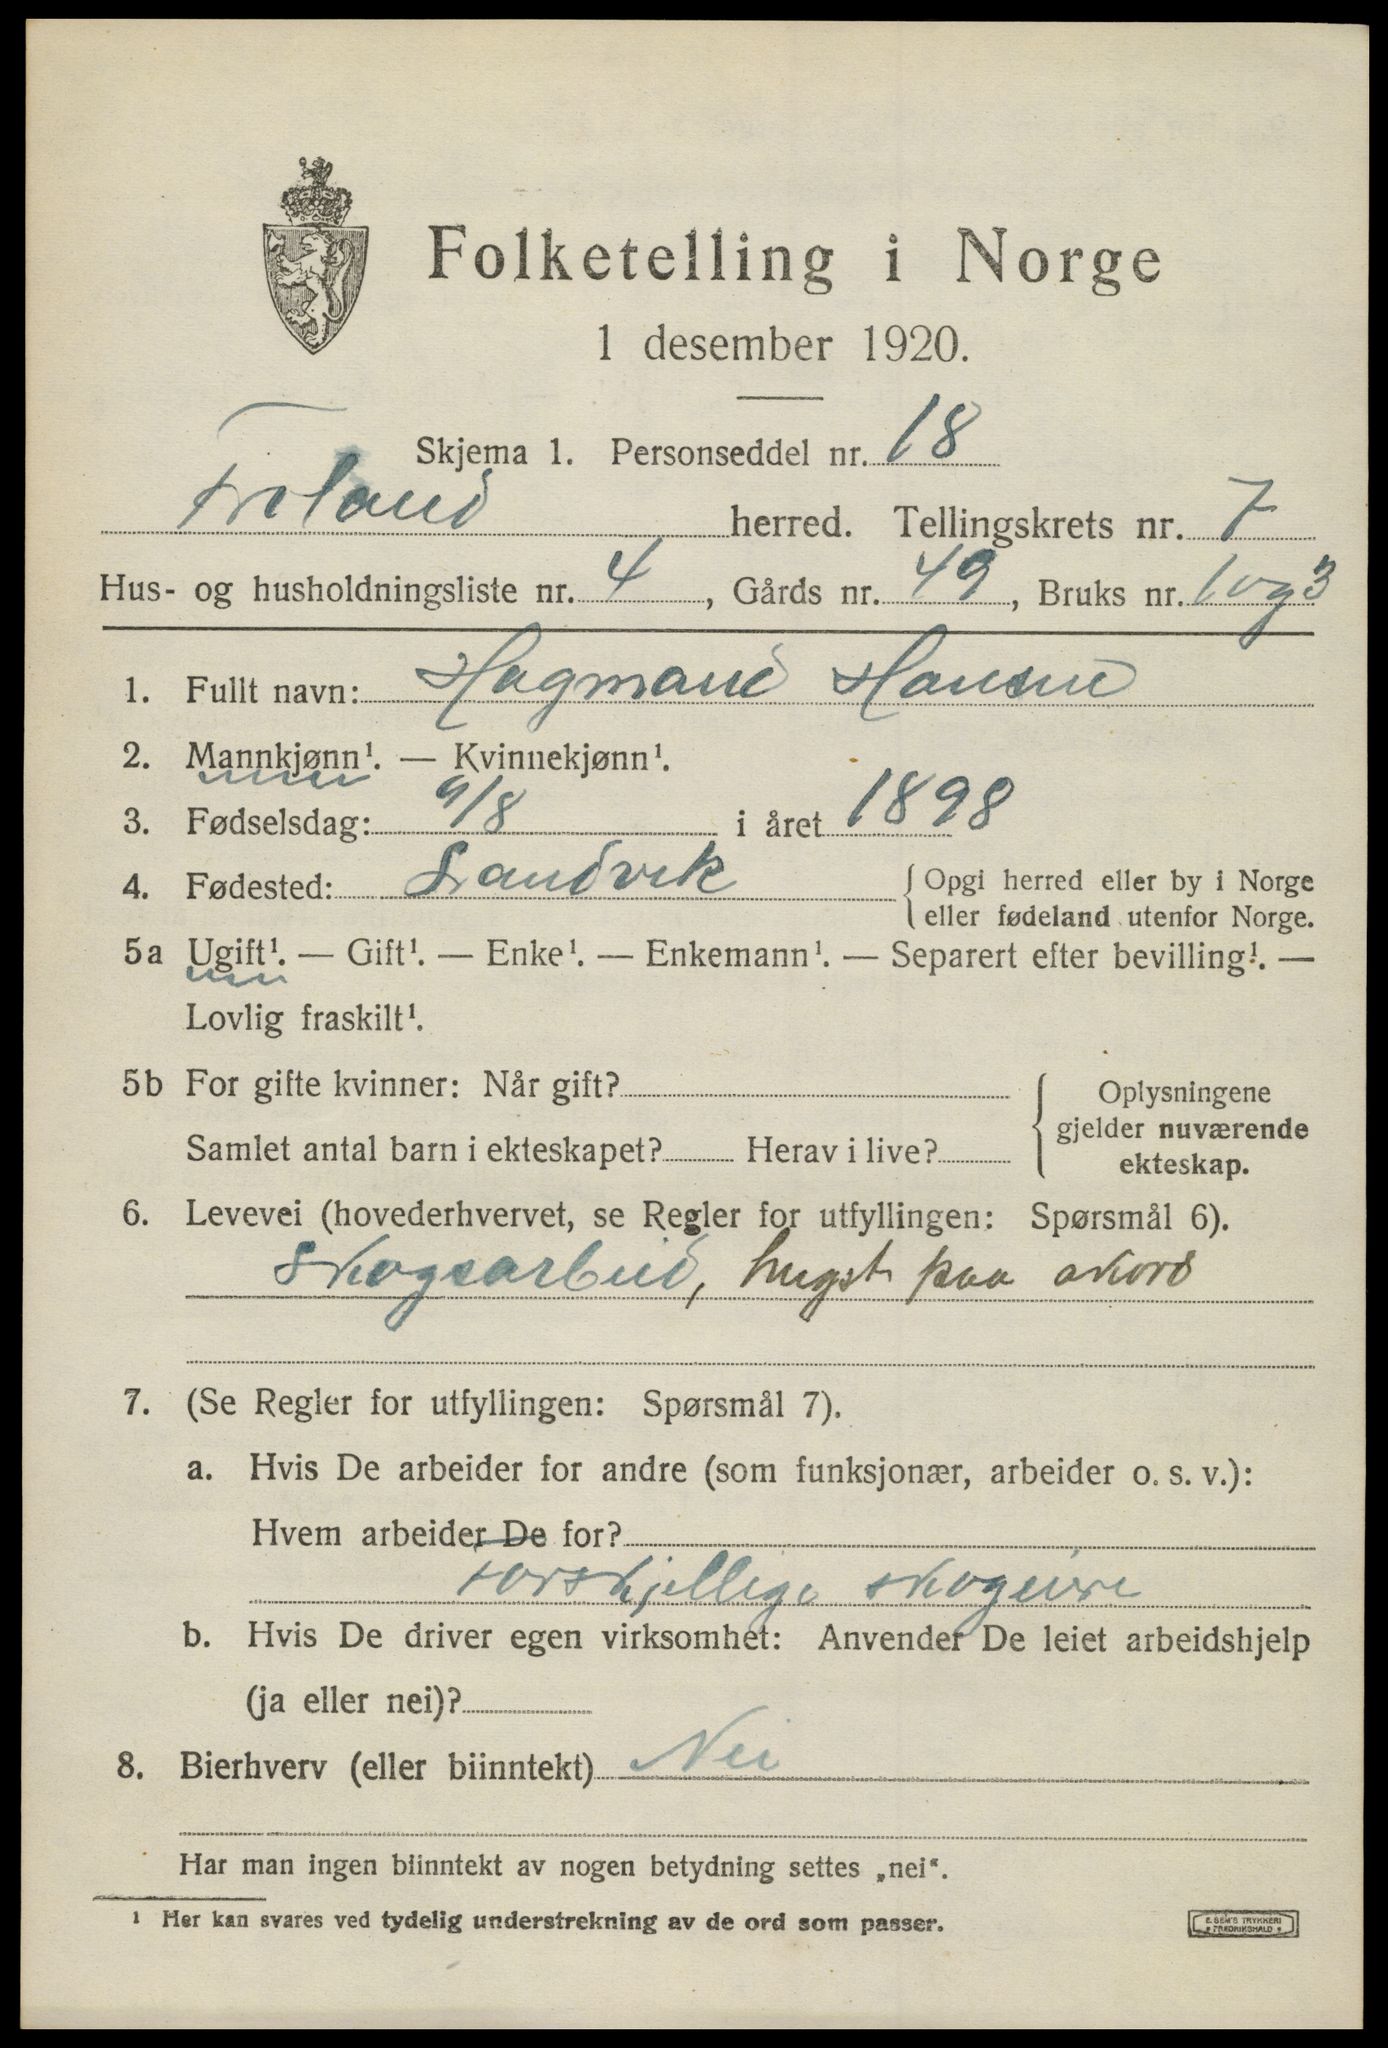 Folketelling i Norge
1 desember 1920.
Skjema 1. Personseddel nr. 18
Froland herred. Tellingskrets nr. 7
Hus- og husholdningsliste nr. 4, Gårds nr. 49, Bruks nr. 1 og 3
1. Fullt navn: Hagmand Hansen
2. Mannkjønn¹. — Kvinnekjønn¹.
3. Fødselsdag: 9/8 i året 1898
4. Fødested: Landvik { Opgi herred eller by i Norge
eller fødeland utenfor Norge.
5a Ugift¹. — Gift¹. — Enke¹. — Enkemann¹. — Separert efter bevilling¹. —
Lovlig fraskilt¹.
5b For gifte kvinner: Når gift?
Samlet antal barn i ekteskapet? Herav i live?
Oplysningene
gjelder nuværende
ekteskap.
6. Levevei (hovederhvervet, se Regler for utfyllingen: Spørsmål 6).
Skogsarbeid, hugst paa akord
7. (Se Regler for utfyllingen: Spørsmål 7).
a. Hvis De arbeider for andre (som funksjonær, arbeider o. s. v.):
Hvem arbeider De for?
Forskjellige skogeiere
b. Hvis De driver egen virksomhet: Anvender De leiet arbeidshjelp
(ja eller nei)?
8. Bierhverv (eller biinntekt) Nei
Har man ingen biinntekt av nogen betydning settes „nei“.
¹ Her kan svares ved tydelig understrekning av de ord som passer.
E. SEM'S TRYKKERI
FREDRIKSHALD